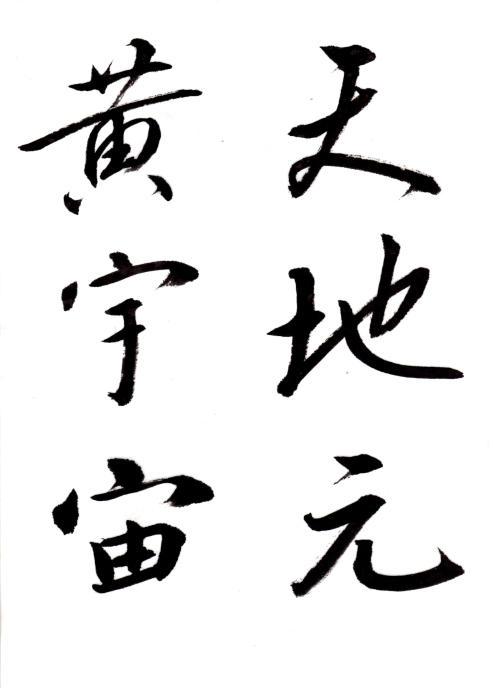 天地元
黄宇宙